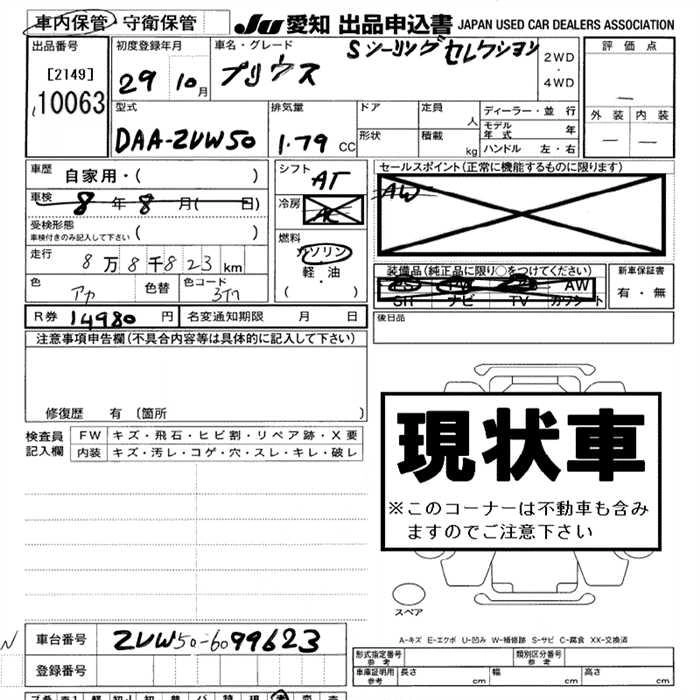 車内保管・守衛保管
JU 愛知 出品申込書 JAPAN USED CAR DEALERS ASSOCIATION
出品番号
[2149]
10063
初度登録年月
29 10月
車名・グレード
Sツーリングセレクション
プリウス
2WD
・
4WD
評価点
外装 内装
型式
DAA-ZVW50
排気量
1.79 CC
ドア
形状
定員 人
積載 kg
ディーラー・並行
モデル年式 年
ハンドル 左・右
車歴 自家用・( )
車検 8年8月( 日)
受検形態
車検付きのみ記入して下さい ( )
走行 8万8千823km
色 アカ 色替 色コード 3T7
シフト AT
冷房 AC
燃料
ガソリン
軽・油
( )
セールスポイント(正常に機能するものに限ります)
AW
装備品(純正品に限り○をつけてください)
PS PW エアB AW
GH ナビ TV カワシート
新車保証書
有・無
R券 14980円 名変通知期限 月 日
後日品
注意事項申告欄(不具合内容等は具体的に記入して下さい)
修復歴 有 〔箇所 〕
検査員記入欄
FW キズ・飛石・ヒビ割・リペア跡・X要
内装 キズ・汚レ・コゲ・穴・スレ・キレ・破レ
現状車
※このコーナーは不動車も含み
ますのでご注意下さい
スペア
A-キズ E-エクボ U-凹み W-補修跡 S-サビ C-腐食 XX-交換済
N 車台番号 ZVW50-6099623
登録番号
形式指定番号 参考
類別区分番号 参考
車庫証明用 参考 長さ cm 幅 cm 高さ cm